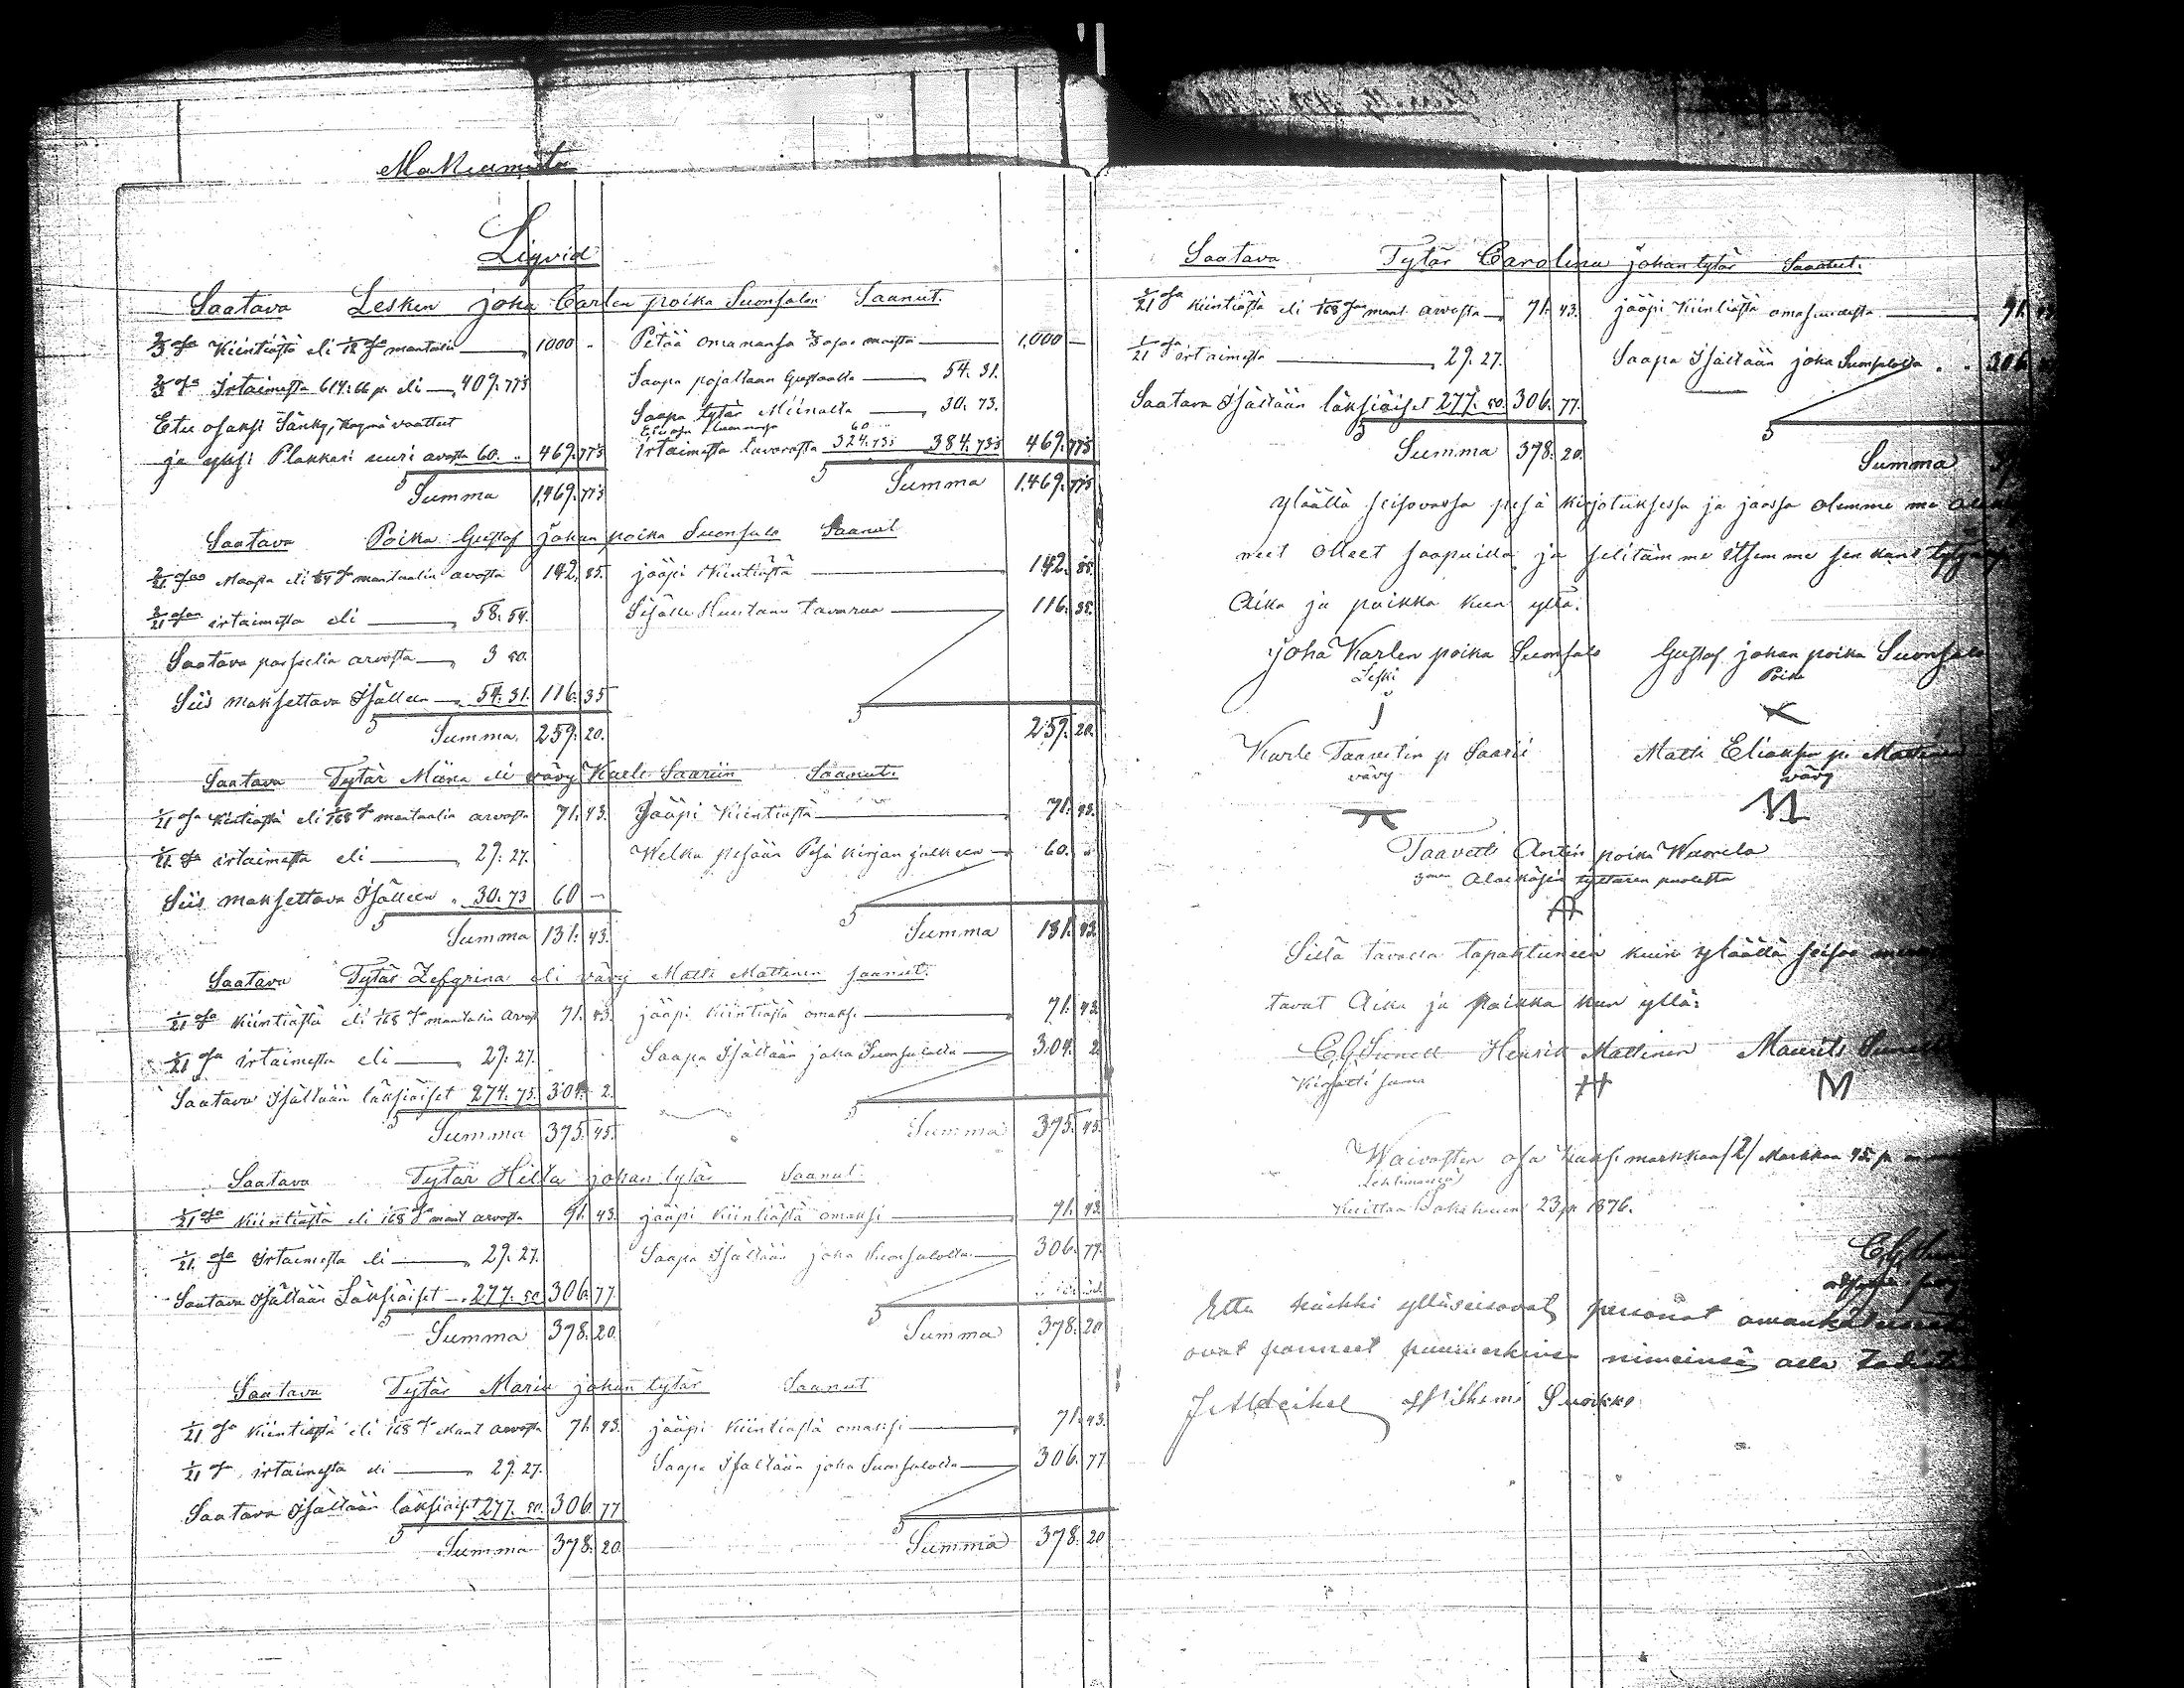 Maksamista
Liqvid
Saatava Lesken joha Carlen poika Suonsalon Saanut.
2/3 osa Kiintiästä eli 1/12 osa mantalia 1000 - Pitää omanansa 2/3 osaa maasta 1,000 —
2/3 osa Irtaimesta 614:66 p. eli 409.775 Saapa pojaltaan Gustaalta 54. 31.
Etu osaksi Sänky, Saapa tytär Miinalta 30. 73.
ja yksi Plakkari uuri arvosta 60. „ 469.775 irtaimesta tavarasta 324.735 384.735 469.775
Summa 1,469.775 Summa 1,469.775
Saatava Poika Gustaf johan poika Suonsalo Saanut
2/21 osaa Maasta eli 1/84 osa mantaalin arvosta 142. 85. jääpi Kiintiästä 142. 85.
2/21 osaa irtaimesta eli 58. 54. Isälle tavaraa 116. 35.
Saatava arvosta 3 50.
Siis maksettava Isälleen 54. 31. 116. 35
Summa 259. 20. 259. 20.
Saatava Tytär Miina eli vävy Karle Saariin Saanut.
1/21 osa Kiintiästä eli 1/168 osa mantaalin arvosta 71. 43. Jääpi Kiintiästä 71. 43.
1/21 osa irtaimesta eli 29. 27. Welka pesään Pesä kirjan jälkeen 60. „
Siis maksettava Isälleen „ 30. 73 60 —
Summa 131. 43. Summa 131. 43.
Saatava Tytär Zefqrina eli vävy Matti Mattinen saanut.
1/21 osa Kiintiästä eli 1/168 osa mantalin arvost 71. 43. jääpi Kiintiästä omaks. 71. 43.
1/21 osa irtaimesta eli 29. 27. Saapa Isältään joha Suonsalolta 304. 2
Saatava Isältään läksiäiset 274. 75. 304. 2.
Summa 375. 45. Summa 375. 45.
Saatava Tytär Hilta johan tytär Saanut.
1/21 osa Kiintiästä eli 1/168 osa mant arvosta 71. 43. jääpi Kiintiästä omaksi 71. 43.
1/21 osa Irtaimesta eli 29. 27. Saapa Isältään joha Suonsalolta 306. 77.
Saatava Isältään Läksiäiset 277. 50 306. 77.
Summa 378. 20. Summa 378. 20
Saatava Tytär Maria johan tytär Saanut
1/21 osa Kiintiästä eli 1/168 osa Mant arvosta 71. 43. jääpi Kiintiästä omaksi 71. 43.
1/21 osa irtaimesta eli 29. 27. Saapa Isältään joha Suonsalolta 306. 77
Saatava Isältään läksiäiset 277. 50. 306. 77
Summa 378. 20. Summa 378. 20
Saatava Tytär Carolina johan tytär Saanut.
1/21 osa Kiintiästä eli 1/168 osa mant. arvosta 71. 43. jääpi Kiintiästä 71.
1/21 osa irtaimesta 29. 27. Saapa Isältään joha Suonsalolta 306
Saatava Isältään läksiäiset 277. 50. 306. 77.
Summa 378. 20. Summa
Ylläällä seisovassa pesä kirjotuksessa ja jaossa olemme me
neet olleet saapuilla ja selitämme itsemme sen kans
Aika ja paikka kun yllä.
Joha Karlen poika Suonsalo Gustaf johan poika Suonsalo
Leski Poika
Karle Taavetin p Saarii Matti Eliaksen p. Mattinen
vävy vävy
Taavetti Antin poika Waorela
3men Alaikäsin tyttären puolesta
Sillä tavalla tapahtuneen kuin ylläällä seisoo
tavat Aika ja paikka kun yllä:
C G Sunell Henrik Mattinen Maurits
Kirjotti sama
Waivasten osa kaksi markkaa /2/ Markkaa 45 p
Kuittaa 23 p. 1876.
Että kaikki ylläseisovat personat omankätisesti
ovat panneet puumerkinsä nimeinsä alle
Wilhemi Suokko